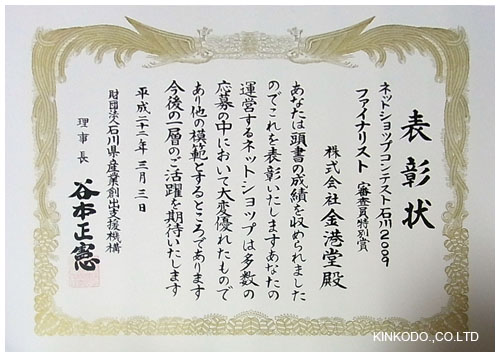 表彰状
ネットショップコンテスト石川2009
ファイナリスト(審査員特別賞)
株式会社金港堂殿
あなたは頭書の成績を収められました
のでこれを表彰いたしますあなたの
運営するネットショップは多数の
応募の中において大変優れたもので
あり他の模範とするところであります
今後の一層のご活躍を期待いたします
平成二十二年三月三日
財団法人石川県産業創出支援機構
理事長 谷本正憲
KINKODO.,CO.LTD